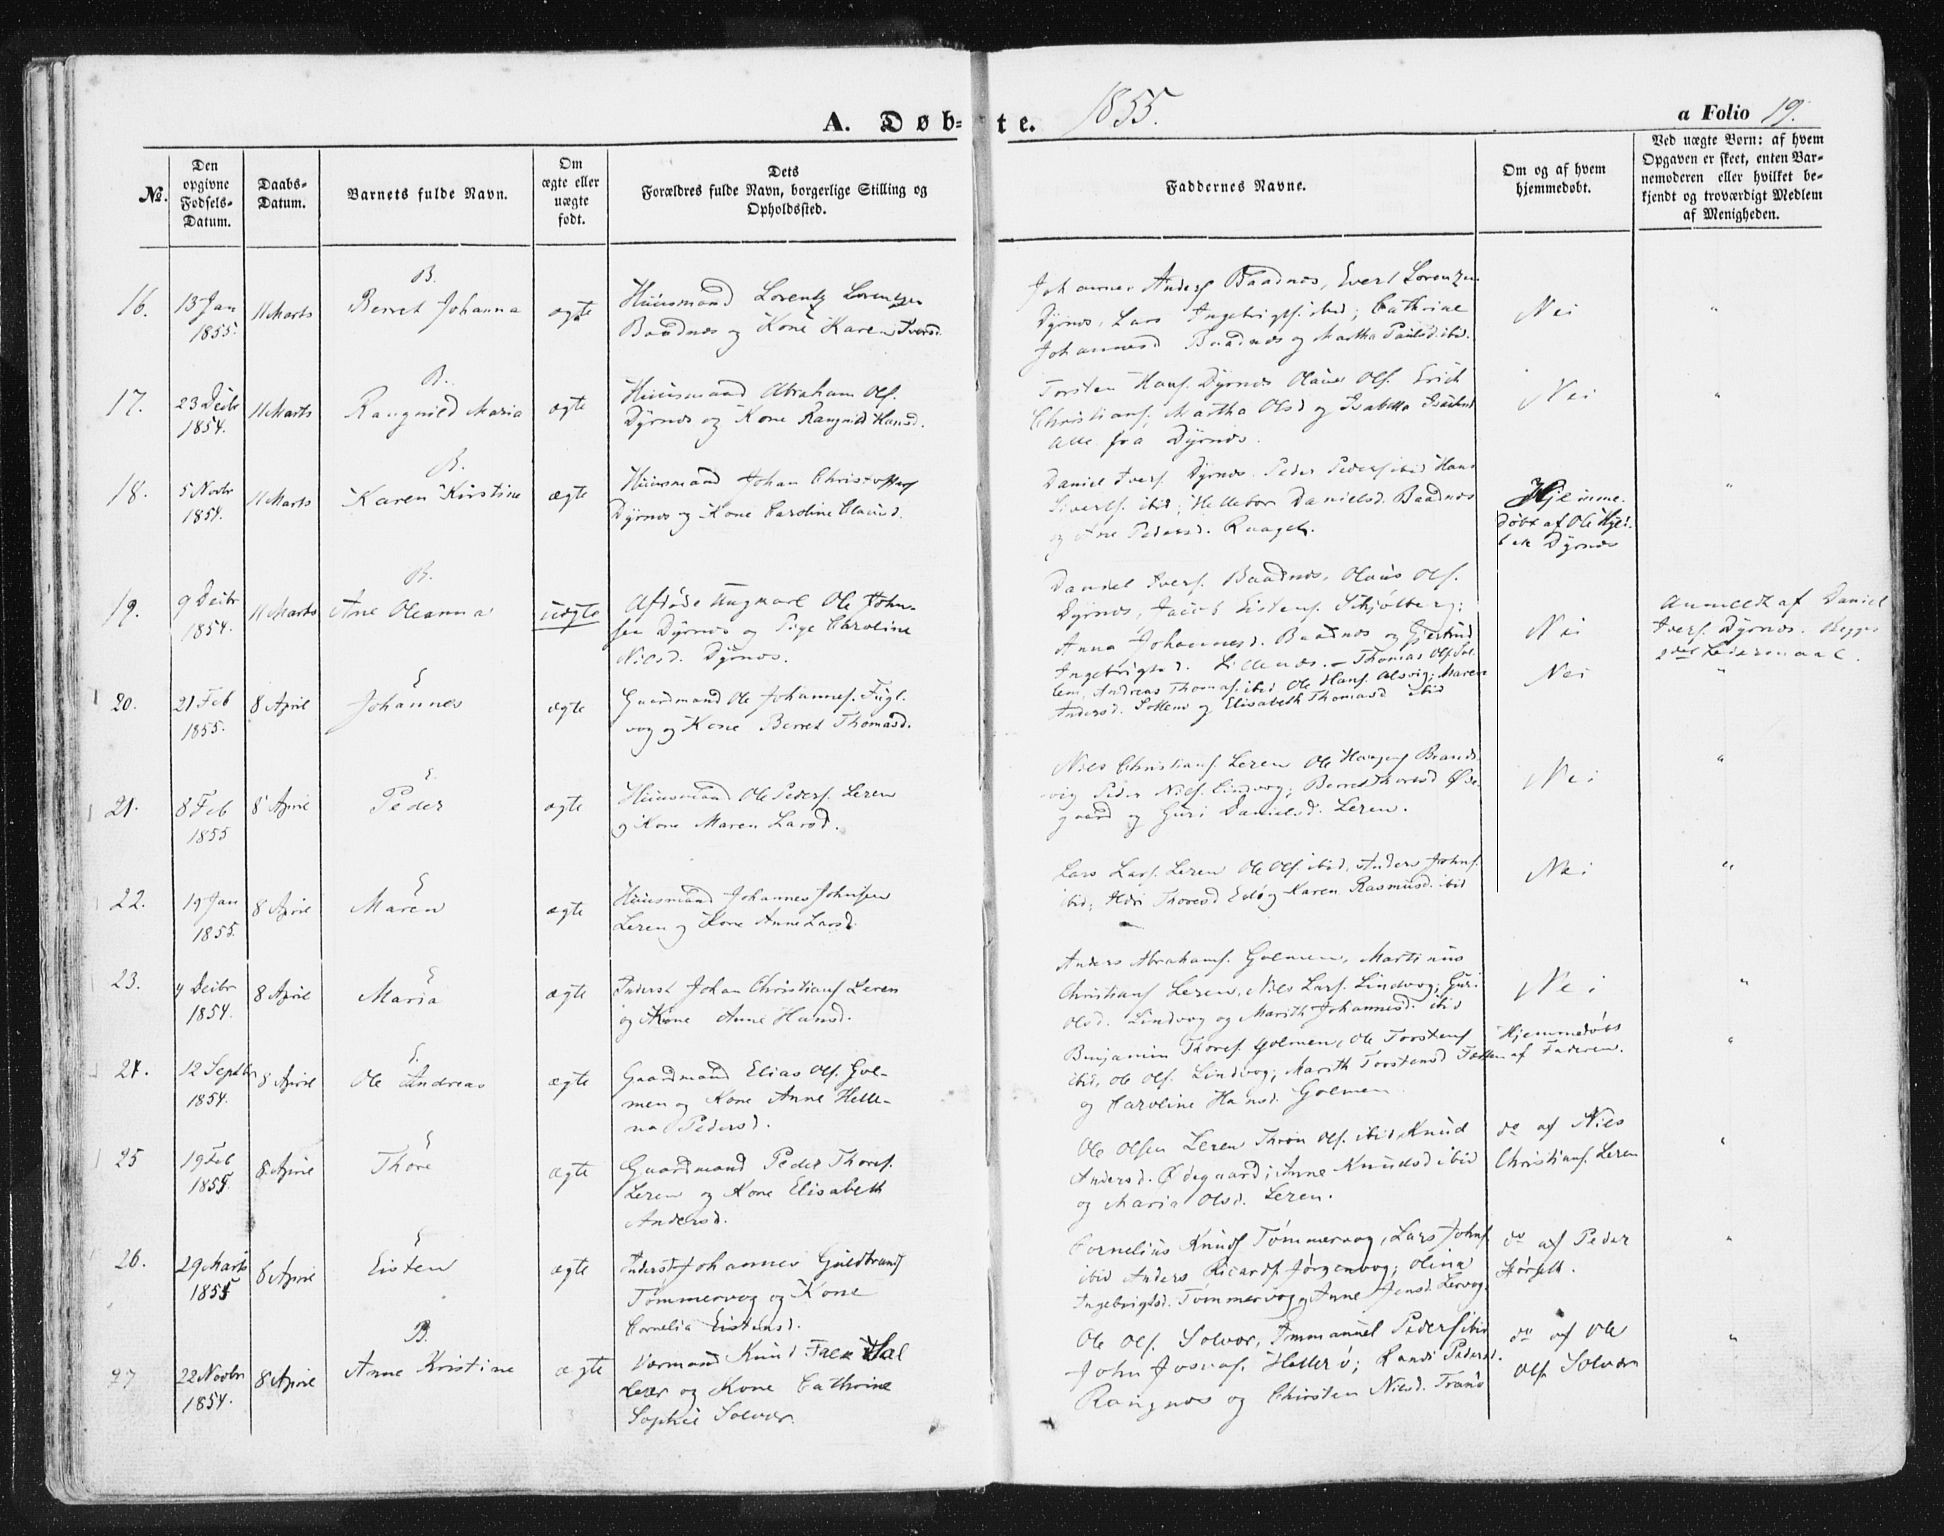 A. Døb-te. 1855.
a Folio 19.
No.
Den opgivne Fødsels-Datum.
Daabs-Datum.
Barnets fulde Navn.
Om ægte eller uægte født.
Dets Forældres fulde Navn, borgerlige Stilling og Opholdssted.
Faddernes Navne.
Om og af hvem hjemmedøbt.
Ved uægte Børn: af hvem Opgaven er skeet, enten Barnemoderen eller hvilket bekjendt og troværdigt Medlem af Menigheden.
B.
16. 13 Jan 1855. 11 Marts Berret Johanna ægte
Huusmand Lorentz Lorentzen
Baadnæs og Kone Karen Iversd.
Johannes Anders. Baadnæs, Evert Lorenzen
Dyrnæs, Lars Ingebrigts. ibid; Cathrine
Johannesd Baadnæs og Martha Paulsd. ibid.
Nei "
B.
17. 23 Decbr 1854. 11 Marts Rangnild Maria ægte
Huusmand Abraham Ols.
Dyrnæs og Kone Rangnild Hansd.
Torsten Hans. Dyrnæs Olaus Ols. Erich
Christians. Martha Olsd og Isabella
Alle fra Dyrnæs.
Nei "
B.
18. 5 Novbr 1854. 11 Marts Karen Kirstine ægte
Huusmand Johan Christoffers
Dyrnæs og Kone Caroline Clausd.
Daniel Ivers. Dyrnæs. Peder Peders. ibid Hans
Siverts. ibid; Hellebor Danielsd. Baadnæs
og Ane Pedersd. Raaget.
Hjemme-
døbt af Ole
Dyrnæs
"
B.
19. 9 Decbr 1854. 11 Marts Ane Oleanna uægte
Afdøde Ungkarl Ole John-
sen Dyrnæs og Pige Caroline
Nilsd. Dyrnæs.
Daniel Ivers. Baadnæs, Olaus Ols.
Dyrnæs, Jacob Eistens. Schjølberg;
Anna Johannesd. Baadnæs og Gjertrud
Ingebrigtsd. Lillenæs.
Nei
Anmeldt af Daniel
Ivers. Dyrnæs. Begges
2det Leiermaal.
E
20. 21 Feb 1855. 8 April Johannes ægte
Gaardmand Ole Johannes. Fugl-
vog og Kone Berret Thomasd.
Thomas Ols. Sol-
lem, Andreas Thomas. ibid Ole Hans. Alsvig; Maren
Andersd. Sollem og Elisabeth Thomasd ibid
Nei "
E.
21. 8 Feb 1855 8 April Peder ægte
Huusmand Ole Peders. Leren
og Kone Maren Larsd.
Nils Christians. Leren Ole Haagens Brands-
vig Peder Nils. Lindvog; Berret Thoresd Øde-
gaard og Guri Danielsd. Leren.
Nei "
E
22. 19 Jan 1855. 8 April Maren ægte
Huusmand Johannes Johnsen
Leren og Kone Anne Larsd.
Lars Lars. Leren Ole Ols. ibid, Anders Johns.
ibid; Thoresd Edøy Karen Rasmusd. ibid
Nei "
E
23. 4 Decbr 1854. 8 April Maria ægte
Inderst Johan Christians Leren
og Kone Anne Hansd.
Anders Abrahams. Golmen, Martinus
Christians Leren, Nils Lars. Lindvog; Guri
Olsd. Lindvog og Marith Johannesd. ibid
Nei "
E.
24. 12 Septbr 1854. 8 April Ole Andreas ægte
Gaardmand Elias Ols. Gol-
men og Kone Anne Helle-
na Pedersd.
Benjamin Thores. Golmen, Ole Torstens
ibid, Ole Ols. Lindvog; Marith Torstensd
og Caroline Hansd. Golmen.
Hjemmedøbt
af Faderen.
"
E
25 19 Feb 1855 8 April Thore ægte
Gaardmand Peder Thores.
Leren og Kone Elisabeth
Andersd.
Ole Olsen Leren Thron Ols. ibid Knud
Andersd. Ødegaard; Anne Knudsd ibid
og Maria Olsd. Leren.
do af Nils
Christians. Leren
"
E
26. 29 Marts 1855 8 April Eisten ægte
Inderst Johannes Guldbrands
Tømmervog og Kone
Cornelia Eistensd.
Cornelius Knuds Tømmervog, Lars Johns.
ibid Anders Ricards. Jørgenvog; Olina
Ingebrigtsd. Tømmervog Anne Jensd. Lervog.
do af Peder
"
B.
27 22 Novbr 1854. 8 April Anne Kristine ægte
Knud Falk
og Kone Cathrine
Sophie Solvær.
Ole Ols. Solvær, Immanuel Peders ibid
John Hellerø; Randi Pedersd.
Rangnæs og Chirsten Nilsd.
do af Ole
Ols. Solvær
"